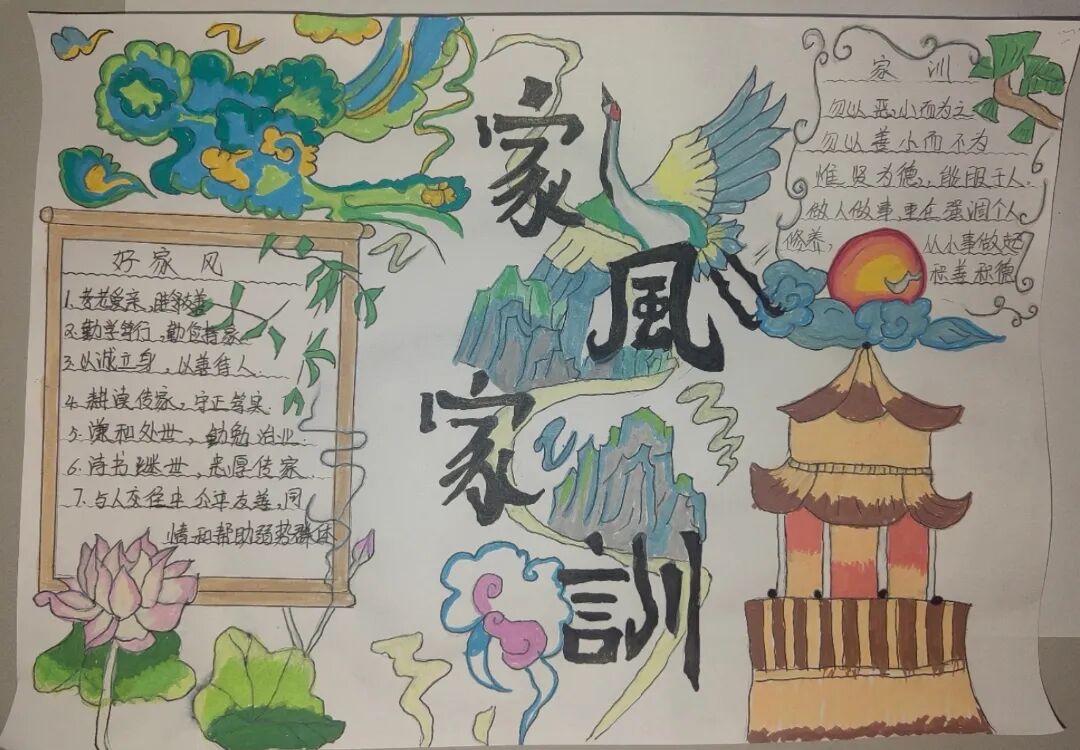 家風
家訓
好家风
1.孝老爱亲，睦邻友善
2.勤学笃行，勤俭持家
3.以诚立身，以善待人.
4.耕读传家，守正笃实.
5.谦和处世，勤勉治业.
6.诗书继世，忠厚传家
7.与人交往中公平友善，同
情和帮助弱势群体
家训
勿以恶小而为之
勿以善小而不为
惟贤为德，能服于人.
做人做事，重在强调个人
修养，从小事做起
积善积德